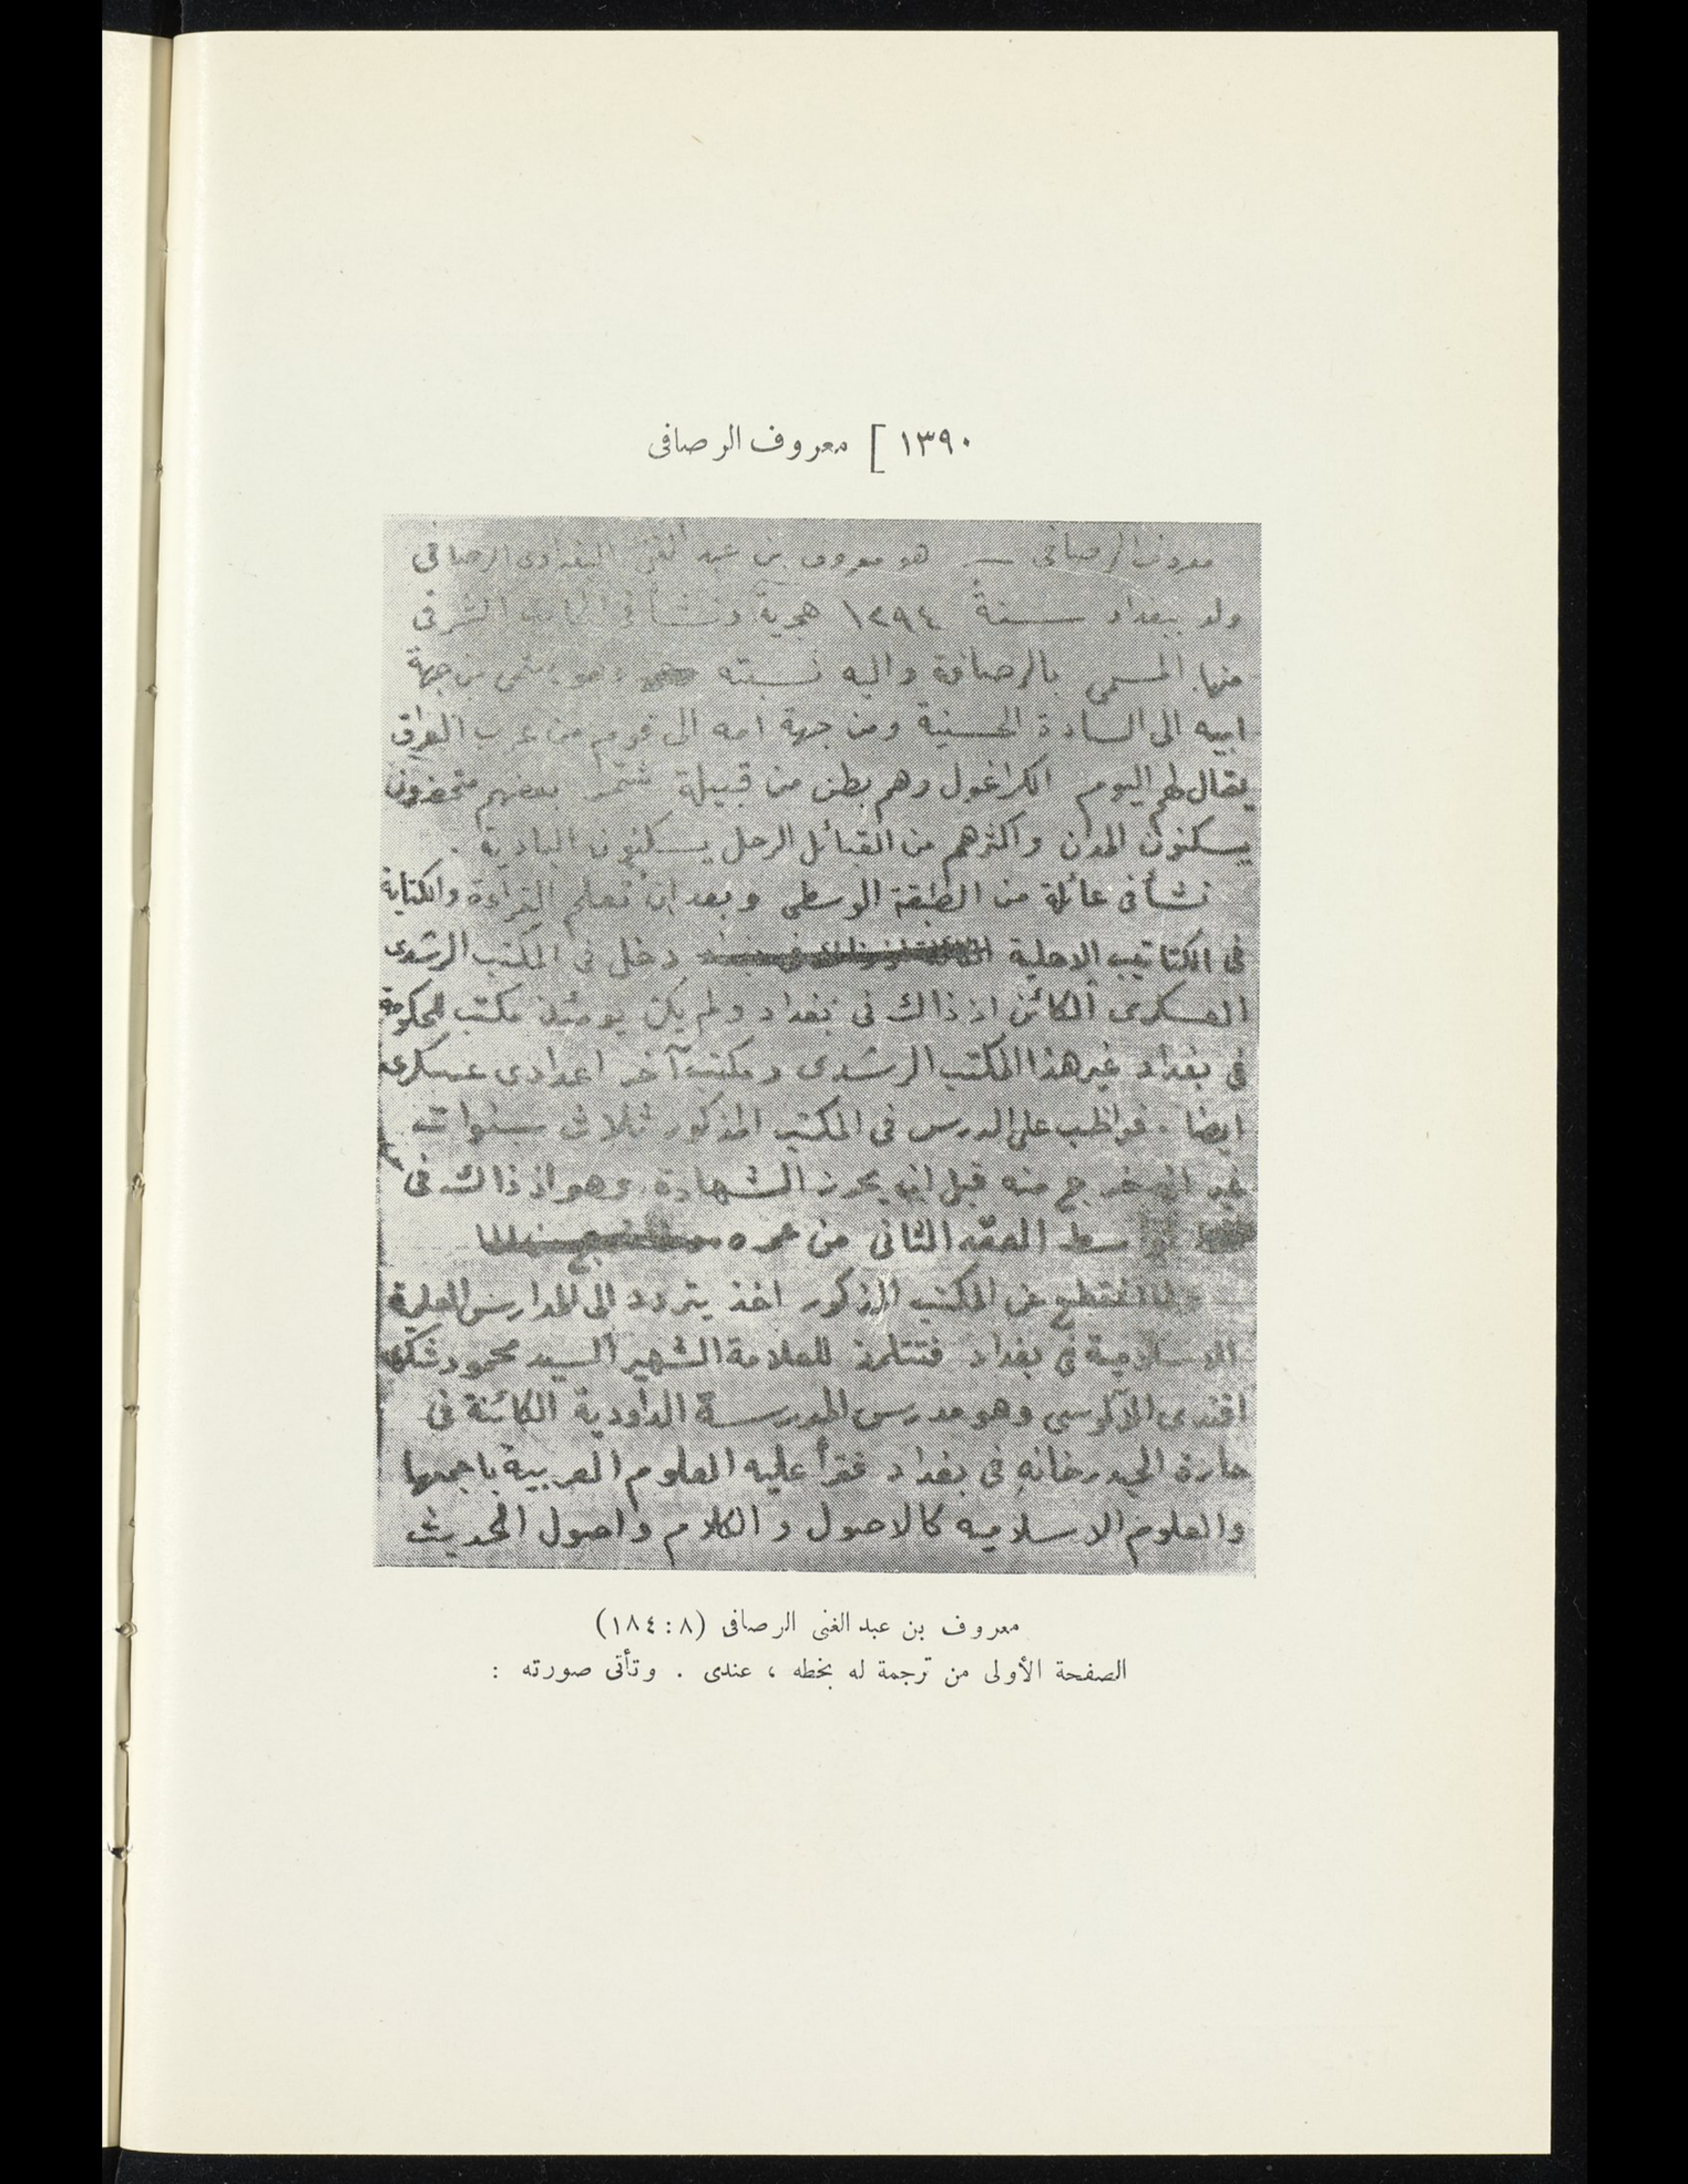 ١٣٩٠ [ معروف الرصافى
معروف الرصافي — هو معروف بن عبد الغني البغدادى الرصافى
ولد ببغداد سنة ١٢٩٤ هجرية ونشأ فى الجانب الشرقى
منها المسمى بالرصافة واليه نسبته وهو ينتمى من جهة
ابيه الى السادة الحسينية ومن جهة امه الى قوم من عرب العراق
يقال لهم اليوم الكراغول وهم بطن من قبيلة شمر بعضهم متحضرون
يسكنون المدن واكثرهم من القبائل الرحل يسكنون البادية .
نشأ فى عائلة من الطبقة الوسطى وبعد ان تعلم القراءة والكتابة
فى الكتاتيب الاهلية دخل فى المكتب الرشدى
العسكرى الكائن اذ ذاك فى بغداد ولم يكن يومئذ مكتب للحكومة
فى بغداد غير هذا المكتب الرشدى ومكتب آخر اعدادى عسكرى
ايضا . فواظب على الدرس فى المكتب المذكور ثلاث سنوات
غير انه خرج منه قبل ان يحرز الشهادة وهو اذ ذاك فى
سط العقد الثانى من عمره
انقطع عن المكتب المذكور اخذ يتردد الى المدارس العلمية
الاسلامية فى بغداد فتتلمذ للعلامة الشهير السيد محمود شكرى
افندى الآلوسى وهو مدرس المدرسة الداودية الكائنة فى
حارة الحيدرخانه فى بغداد فقرأ عليه العلوم العربية باجمعها
والعلوم الاسلاميه كالاصول والكلام واصول الحديث
معروف بن عبد الغنى الرصافى (٨ : ١٨٤)
الصفحة الأولى من ترجمة له بخطه ، عندى . وتأتى صورته :